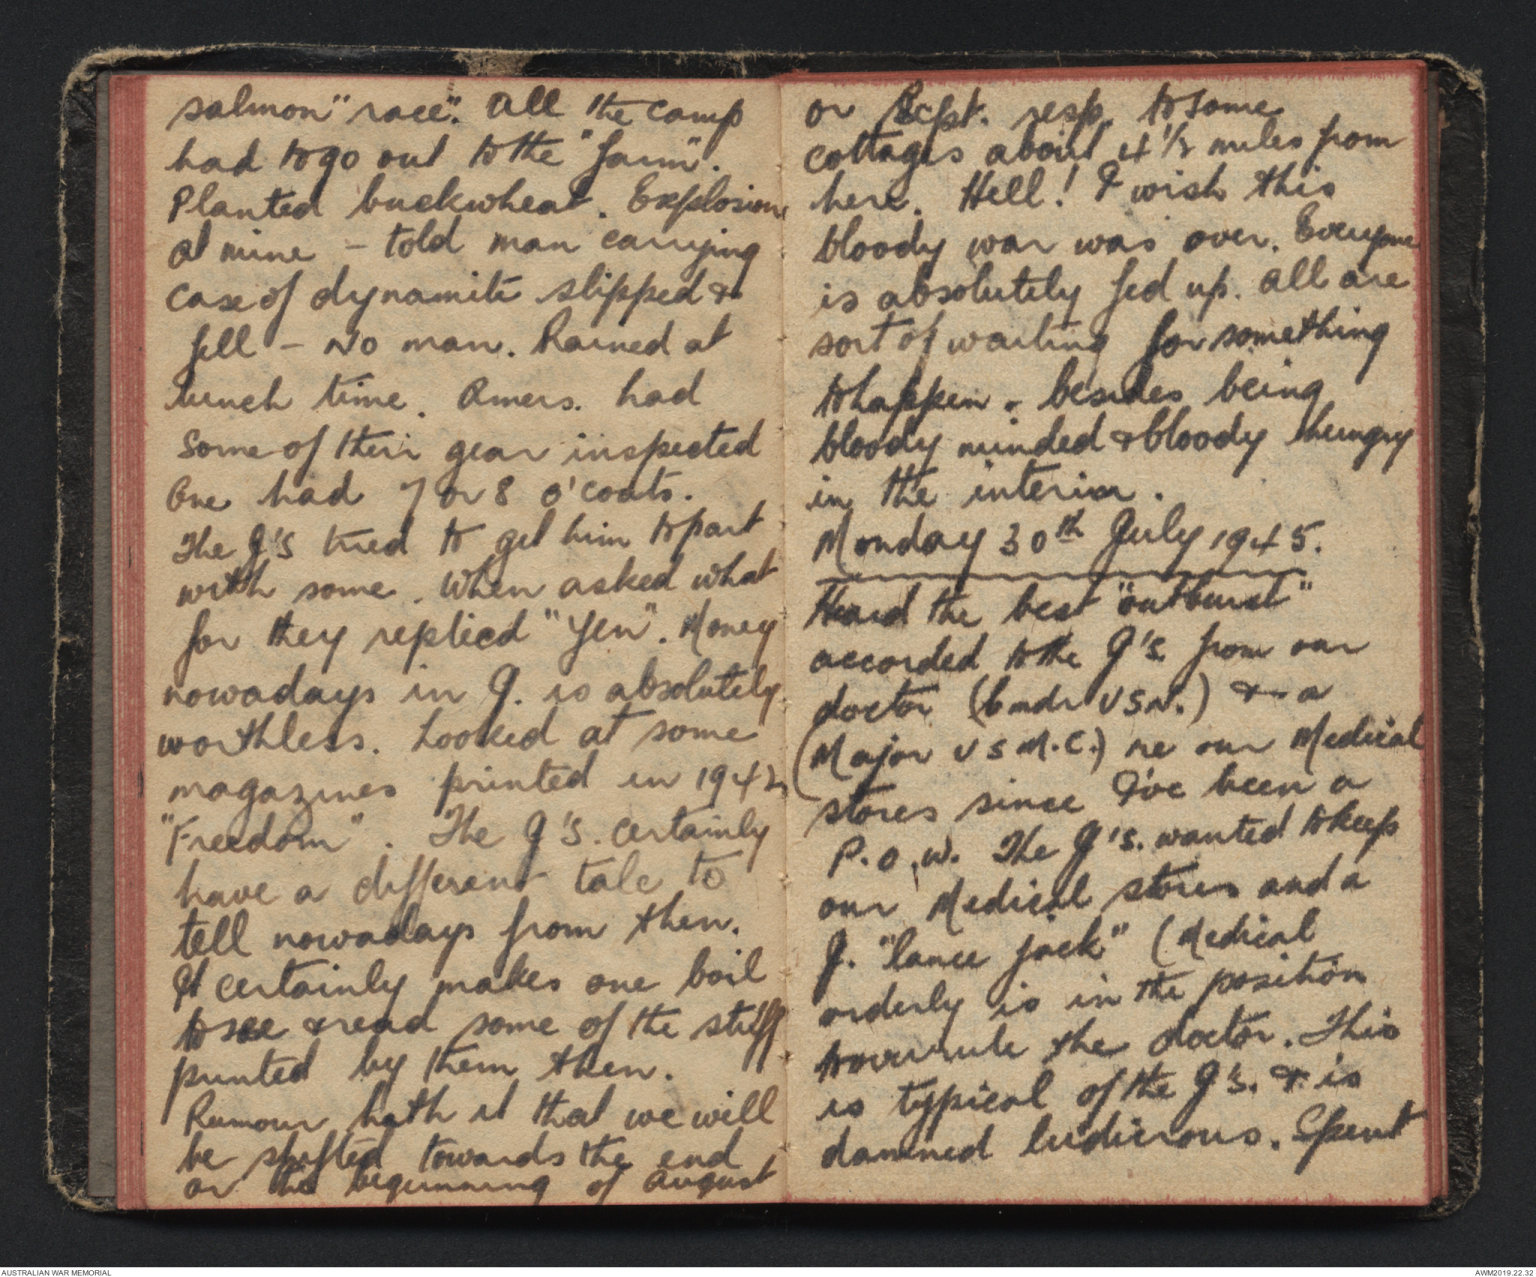 salmon "race". All the camp
had to go out to the "farm".
Planted buckwheat. Explosion
at mine – told man carrying
case of dynamite slipped &
fell – No man. Rained at
lunch time. Amers. had
some of their gear inspected
One had 7 or 8 o'coats.
The J's tried to get him to part
with some. When asked what
for they replied "Yen". Money
nowadays in J. is absolutely
worthless. Looked at some
magazines printed in 1942
"Freedom". The J's. certainly
have a different tale to
tell nowadays from then.
It certainly makes one boil
to see & read some of the stuff
printed by them then.
Rumour hath it that we will
be shifted towards the end
or the beginning of August
or Sept. resp. to some
cottages about 4 1/2 miles from
here. Hell! I wish this
bloody war was over. Everyone
is absolutely fed up. All are
sort of waiting for something
to happen - besides being
bloody minded & bloody hungry
in the interim.
Monday 30th July 1945.
Heard the best "outburst"
accorded to the J's. from our
doctor (Cmdr USN.) & a
(Major USM.C.) re our Medical
stores since I've been a
P.O.W. The J's. wanted to keep
our Medical stores and a
J. "lance jack" (Medical
orderly is in the position
to overrule the doctor. This
is typical of the J's. & is
damned ludicrous. Spent
AUSTRALIAN WAR MEMORIAL
AWM2019.22.32